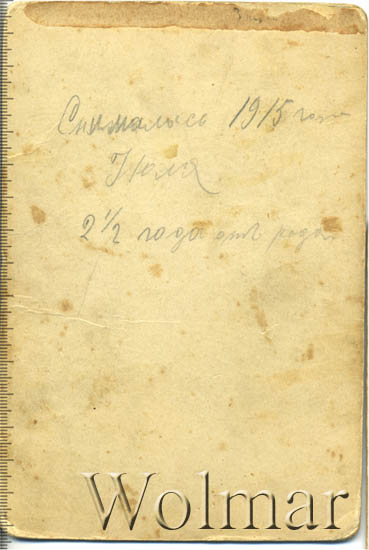 Снималась 1915 года
Июля
2½ года отъ роду
Wolmar